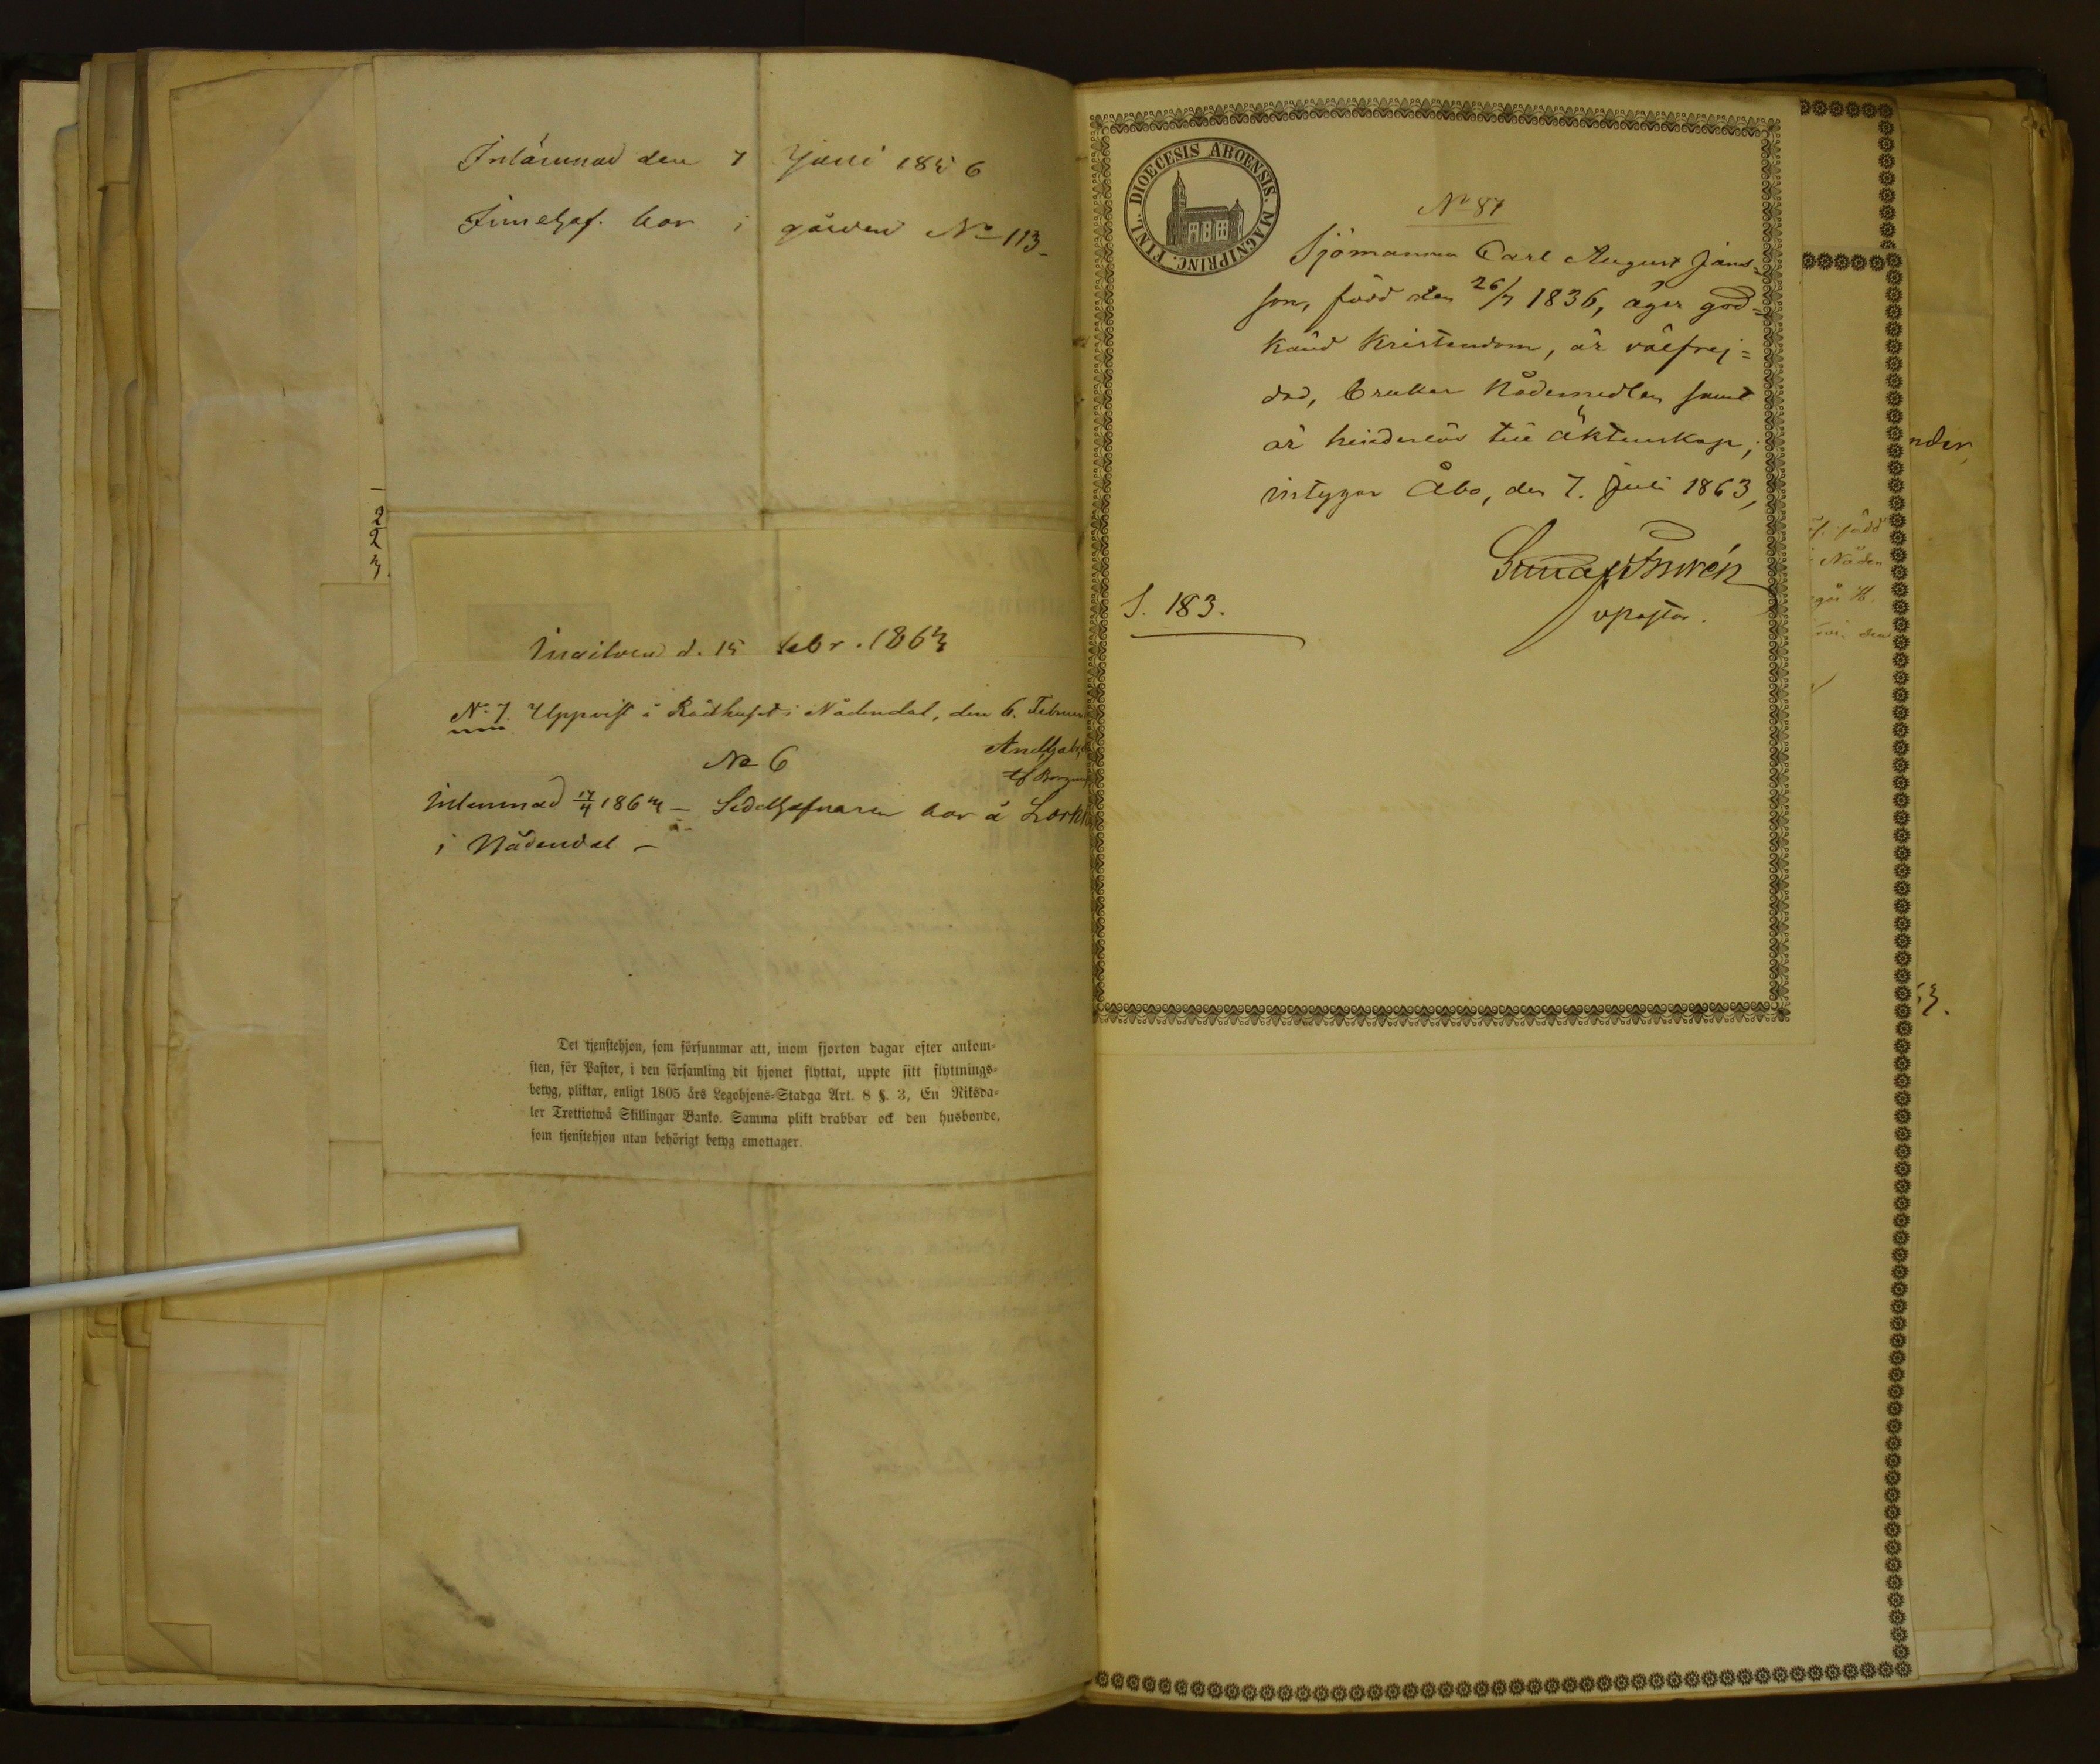 Inlämnad den 7 Juni 1856
Innehaf. bor i gården No 113-
2
2
3.
d. 15 Febr. 1863
No 7. Uppvist å Rådhuset i Nådendal, den 6. Februa
No 6
Inlemnad 17/4 1863 - Sedelhafvaren bor å
i Nådendal -
Det tjenstehjon, som försummar att, inom fjorton dagar efter ankom-
sten, för Pastor, i den församling dit hjonet flyttat, uppte sitt flyttnings-
betyg, pliktar, enligt 1805 års Legohjons-Stadga Art. 8 §. 3, En Riksda-
ler Trettiotwå Skillingar Banko. Samma plikt drabbar ock den husbonde,
som tjenstehjon utan behörigt betyg emottager.
DIOECESIS ABOENSIS. MAGNIPRINC. FINL.
No 87
Sjömannen Carl August Jans=
son, född den 26/7 1836, äger god=
känd Kristendom, är välfrej=
dad, brukar Nådemedlen samt
är hinderlös till äktenskap,
intygar Åbo, den 7. Juli 1863,
v pastor.
S. 183.
nder,
född
Nåden
den
63.